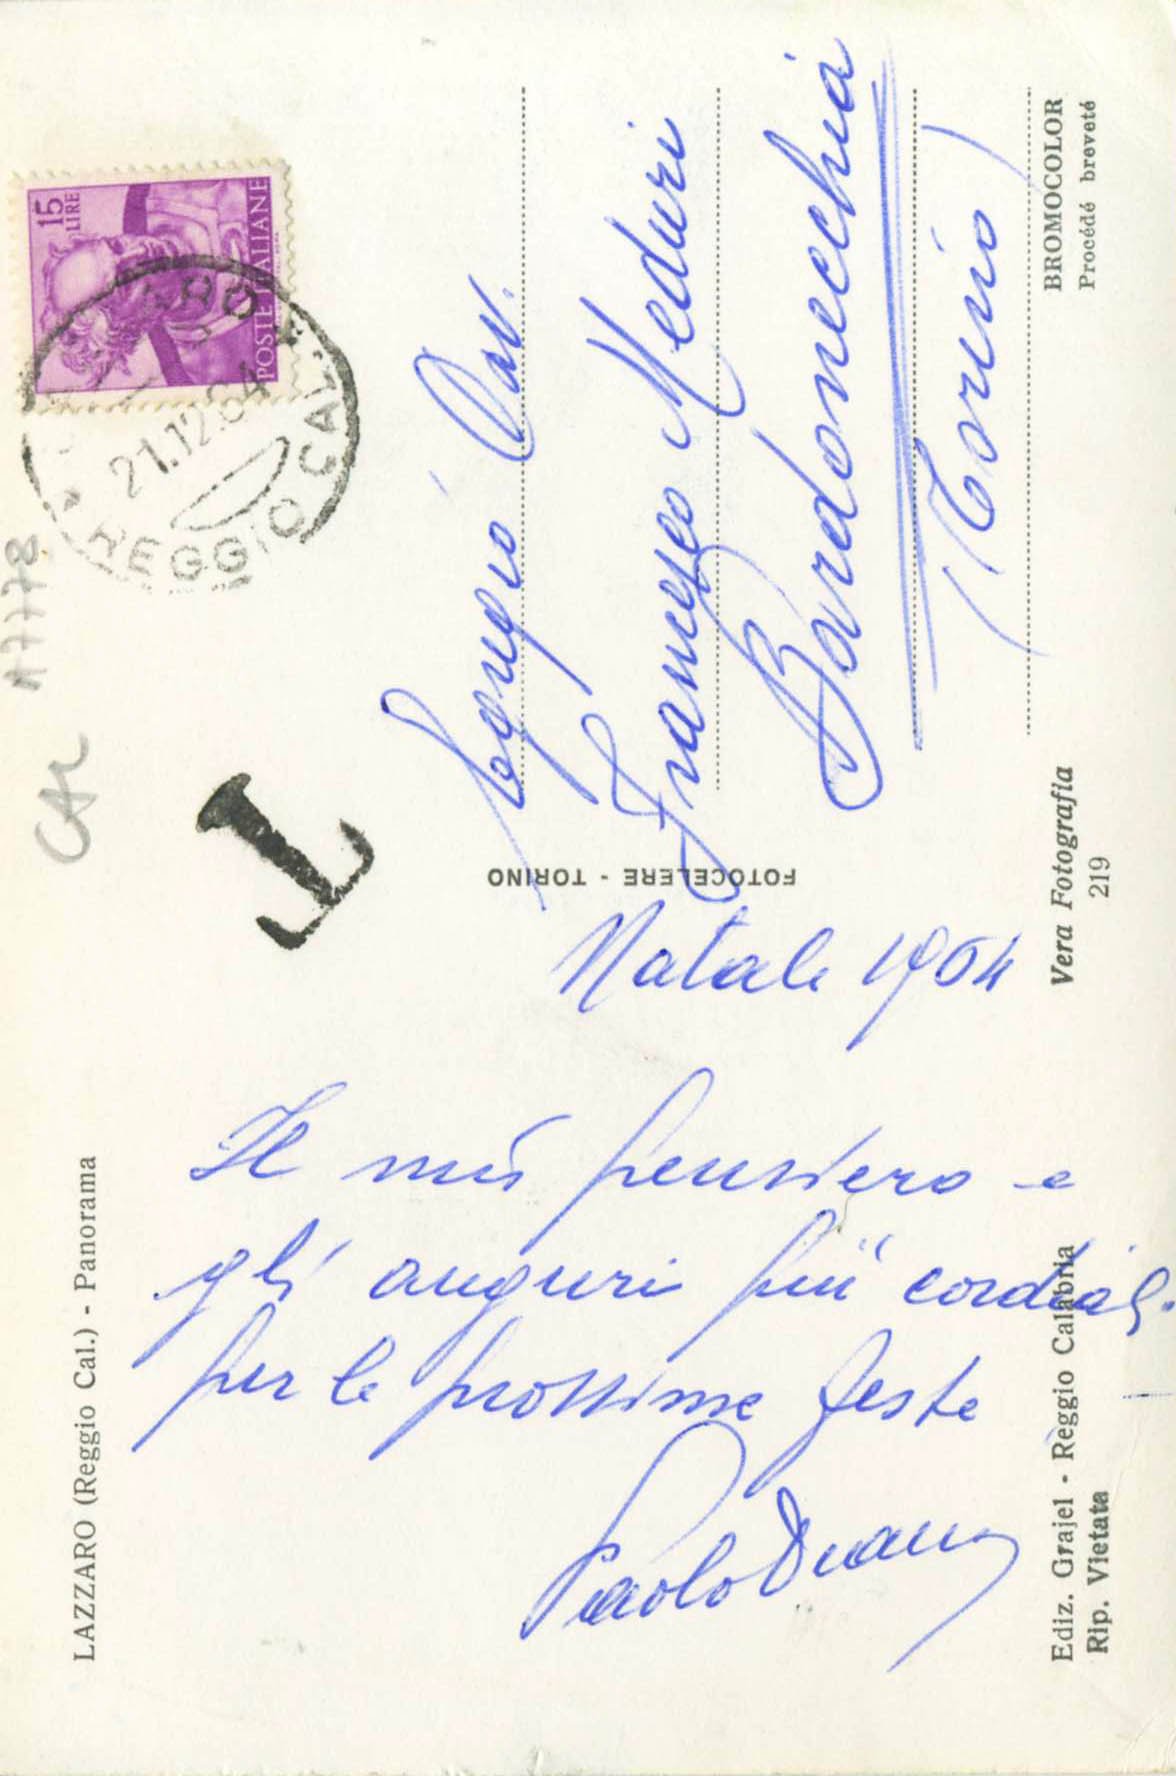 LAZZARO (Reggio Cal.) - Panorama
Natale 1964
Il mio pensiero e
gli auguri più cordiali
per le prossime feste
Paolo
Ediz. Grajel - Reggio Calabria
Rip. Vietata
FOTOCELERE - TORINO
Vera Fotografia
219
BROMOCOLOR
Procédé breveté
15
LIRE
POSTE ITALIANE
21.12.64
REGGIO CAL.
T
A7778
CAL
Cav.
Francesco Meduri
Bardonecchia
(Torino)